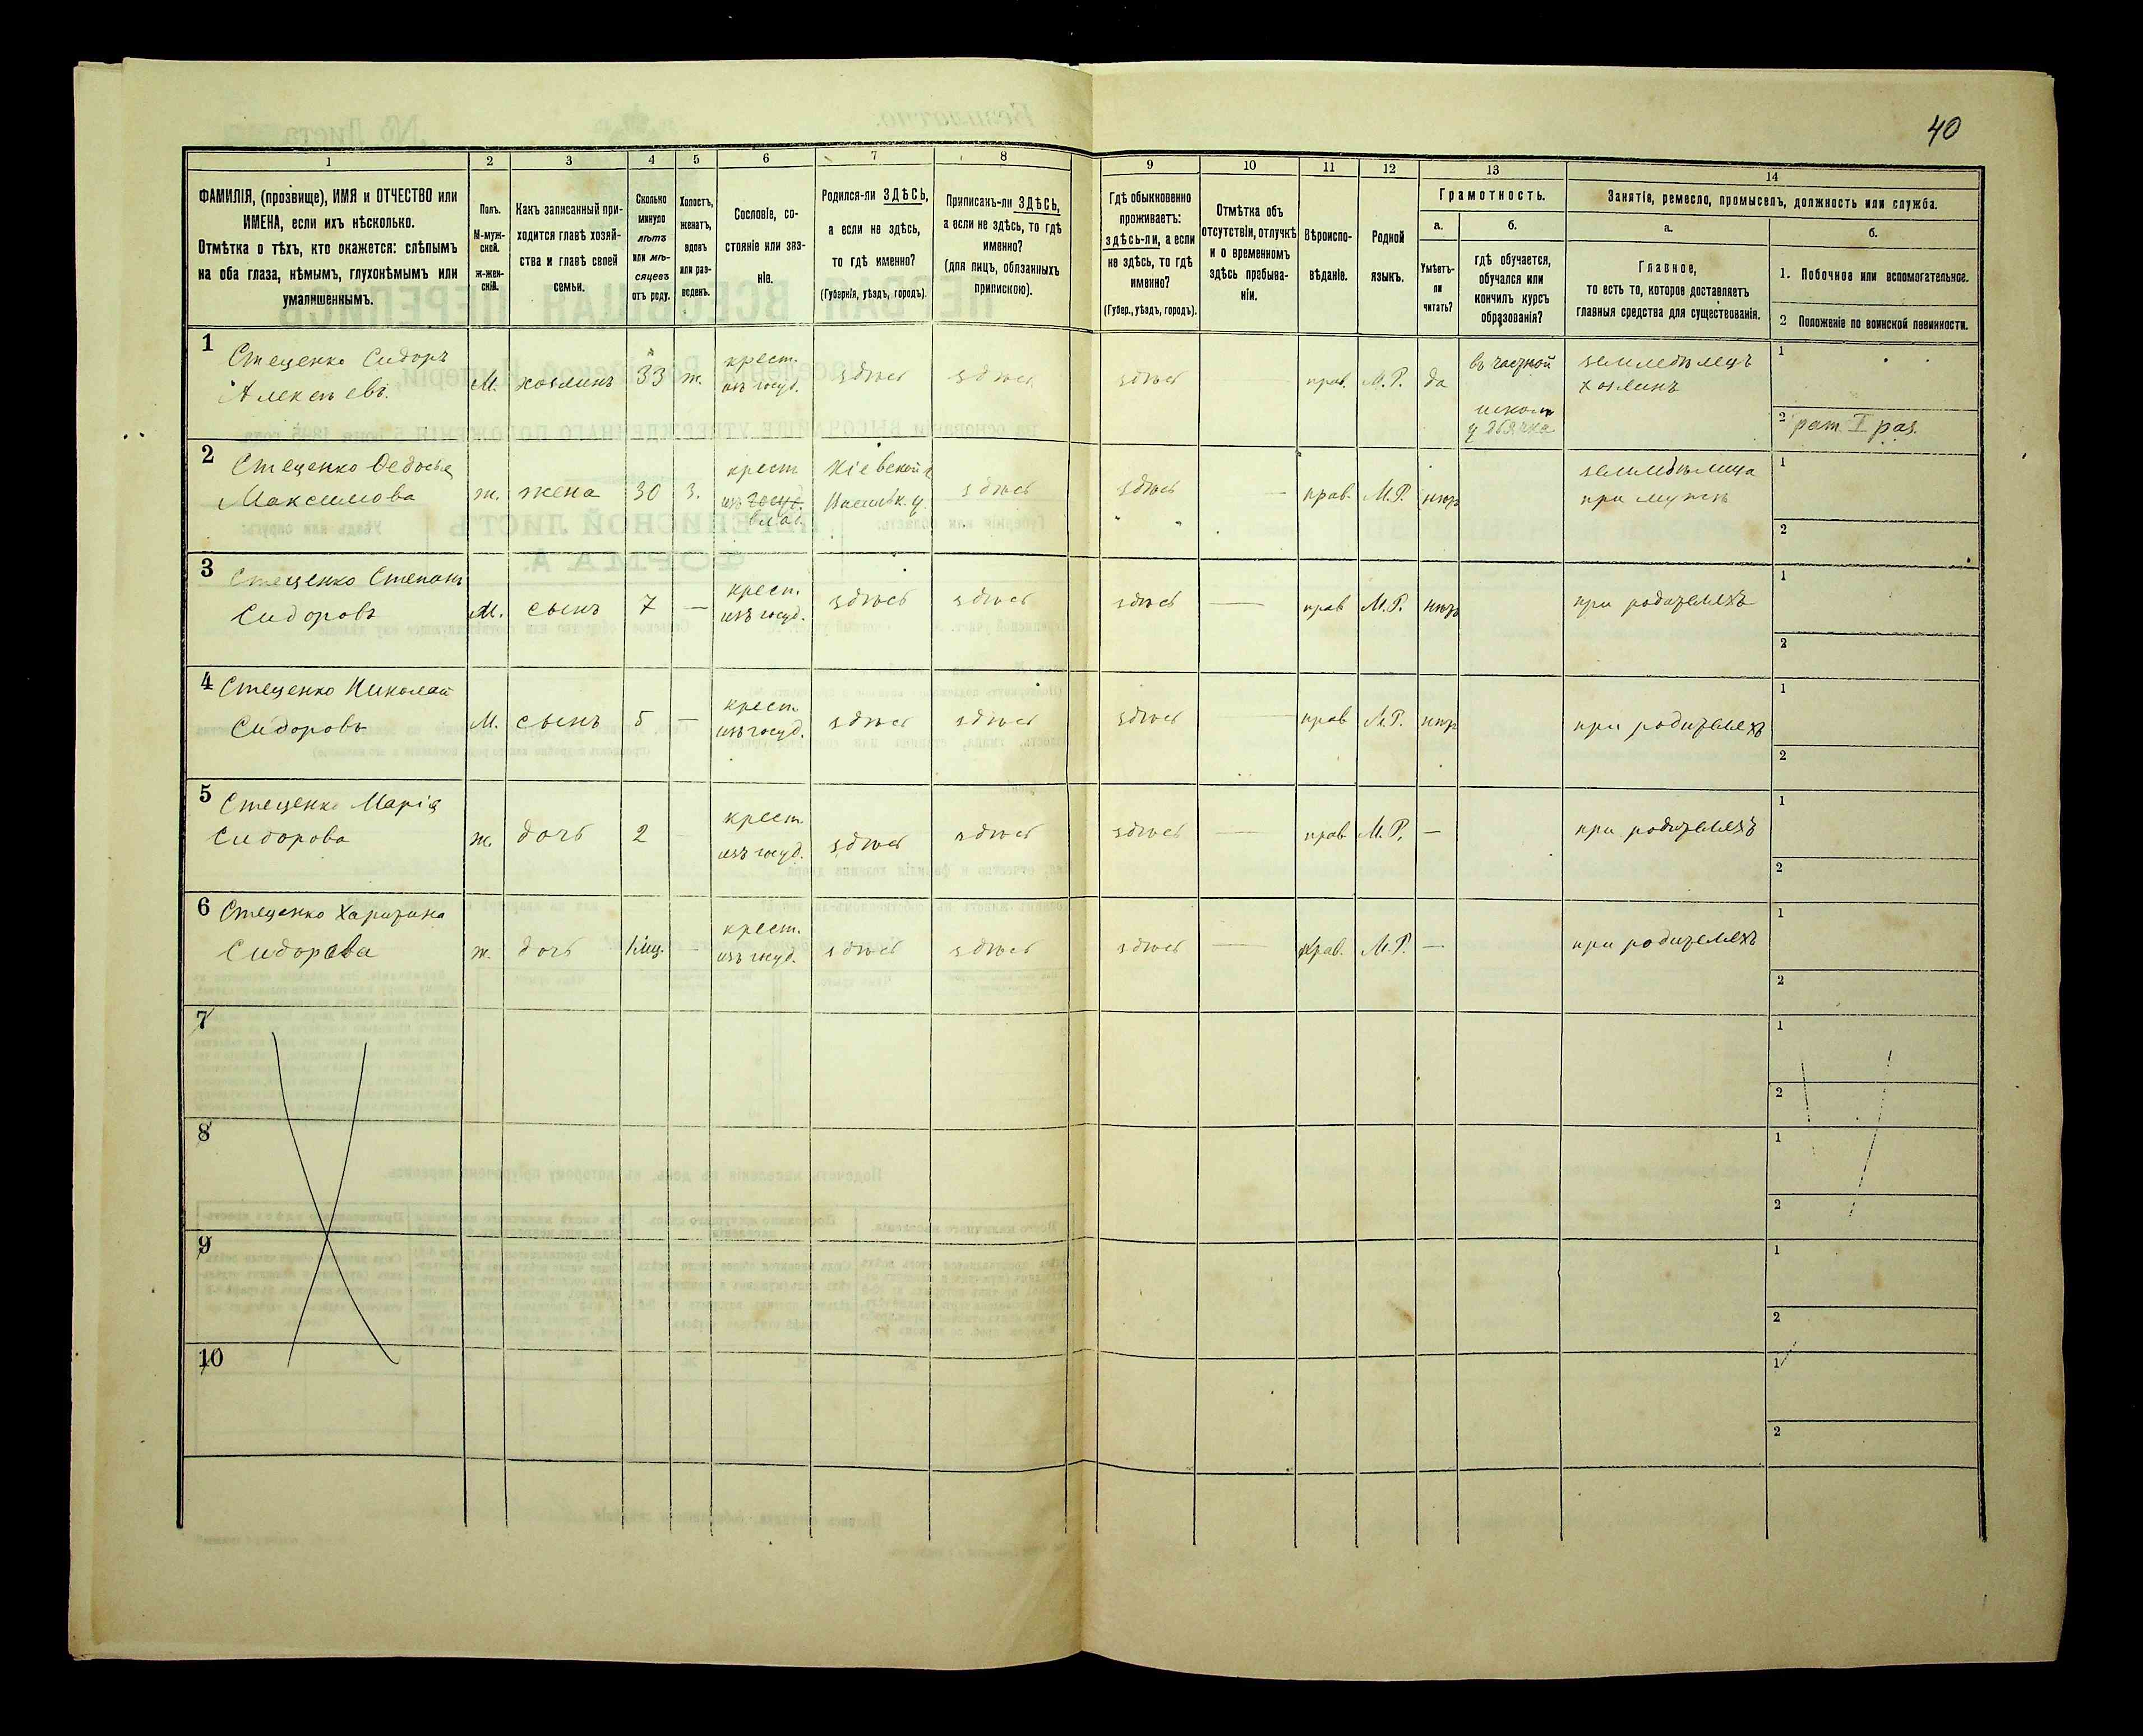 40
1
2
3
4
5
6
7
8
9
10
11
12
13
14
ФАМИЛІЯ, (прозвище), ИМЯ и ОТЧЕСТВО или
ИМЕНА, если ихъ нѣсколько.
Отмѣтка о тѣхъ, кто окажется: слѣпымъ
на оба глаза, нѣмымъ, глухонѣмымъ или
умалишеннымъ.
Полъ.
М-муж-
ской.
ж-жен-
скій.
Какъ записанный при-
ходится главѣ хозяй-
ства и главѣ своей
семьи.
Сколько
минуло
лѣтъ
или мѣ-
сяцевъ
отъ роду.
Холостъ,
женатъ,
вдовъ
или раз-
веденъ.
Сословіе, со-
стояніе или зва-
ніе.
Родился-ли ЗДѢСЬ,
а если не здѣсь,
то гдѣ именно?
(Губернія, уѣздъ, городъ).
Приписанъ-ли ЗДѢСЬ,
а если не здѣсь, то гдѣ
именно?
(для лицъ, обязанныхъ
припискою).
Гдѣ обыкновенно
проживаетъ:
здѣсь-ли, а если
не здѣсь, то гдѣ
именно?
(Губер., уѣздъ, городъ).
Отмѣтка объ
отсутствіи, отлучкѣ
и о временномъ
здѣсь пребыва-
ніи.
Вѣроиспо-
вѣданіе.
Родной
языкъ.
Грамотность.
а.
Умѣетъ-
ли
читать?
б.
гдѣ обучается,
обучался или
кончилъ курсъ
образованія?
Занятіе, ремесло, промыселъ, должность или служба.
а.
Главное,
то есть то, которое доставляетъ
главныя средства для существованія.
б.
1. Побочное или вспомогательное.
2 Положеніе по воинской повинности.
1
Стеценко Сидоръ
Алексѣевъ.
М.
хозяинъ
33
ж.
крест.
изъ госуд.
здѣсь
здѣсь
здѣсь
прав.
М.Р.
да
въ частной
школѣ
у дьячка
земледѣлецъ
хозяинъ
1
2 рат. I раз.
2
Стеценко Ѳедосья
Максимова
ж.
жена
30
з.
крест
изъ госуд.
влад.
Кіевской г.
Васильк. у.
здѣсь
здѣсь
—
прав.
М.Р.
нѣтъ
земледѣлица
при мужѣ
1
2
3
Стеценко Степанъ
Сидоровъ
М.
сынъ
7
—
крест.
изъ госуд.
здѣсь
здѣсь
здѣсь
—
прав
М.Р.
нѣтъ
при родителяхъ
1
2
4
Стеценко Николай
Сидоровъ
М.
сынъ
5
—
крест
изъ госуд.
здѣсь
здѣсь
здѣсь
—
прав
М.Р.
нѣтъ
при родителяхъ
1
2
5
Стеценко Марія
Сидорова
ж.
дочь
2
крест.
изъ госуд.
здѣсь
здѣсь
здѣсь
—
прав
М.Р.
—
при родителяхъ
1
2
6
Стеценко Харитина
Сидорова
ж.
дочь
—
крест.
изъ госуд.
здѣсь
здѣсь
здѣсь
—
прав.
М.Р.
—
при родителяхъ
1
2
7
1
2
8
1
2
9
1
2
10
1
2